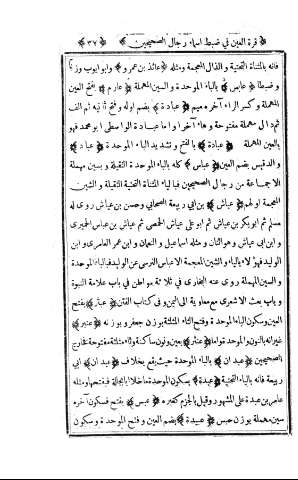 ﴿ قرة العين في ضبط اسماء رجال الصحيحين ﴾ ﴿ ٣٧ ﴾
فانه بالمثناة التحتية والذال المعجمة ومثله ﴿ عائذ بن عمرو ﴾ وابو ايوب وزنا
وضبطا ﴿ عابس ﴾ بالباء الموحدة والسين المهملة ﴿ عارم ﴾ بفتح العين
المهملة وكسر الراء آخره ميم ﴿ عبادة ﴾ بضم اوله وفتح ثانيه ثم الف
ثم دال مهملة مفتوحة وهاء آخرا وما عبادة الواسطي ابو محمد فهو
بالعين المهملة ﴿ عبادة ﴾ بالفتح وتشديد الباء الموحدة ﴿ عباد ﴾
والد قيس بضم العين ﴿ عباس ﴾ كله بالباء الموحدة الثقيلة وسين مهملة
الا جماعة من رجال الصحيحين فبالياء المثناة التحتية الثقيلة والشين
المعجمة اولهم ﴿ عياش ﴾ بن ابي ربيعة الصحابي وحسن بن عياش روى له
مسلم ثم ابو بكر بن عياش ثم ابو علي عياش الحمصي ثم عياش بن عباس الحميري
وابن ابي عياش وهو النعمان ومثله اسماعيل والنعمان وابن عمر العامري وابن
الوليد فهؤلاء بالياء والشين المعجمة الا عباس النرسي عن الوليد فبالباء الموحدة
والسين المهملة روى عنه البخاري في ثلاثة مواطن في باب علامة النبوة
وباب بعث الاشعري مع معاوية الى اليمن وفي كتاب الفتن ﴿ عبثر ﴾ بفتح
العين وسكون الباء الموحدة وفتح الثاء المثلثة بوزن جعفر وبوزنه ﴿ عنبر ﴾
غير انه بالنون والموحدة توأما ﴿ عنثر ﴾ بعين ونون ساكنة وثاء مثلثة مفتوحة فخارج
الصحيحين ﴿ عبدان ﴾ بالباء الموحدة حيث يقع بخلاف ﴿ عيدان ﴾ ابي
ربيعة فانه بالياء التحتية ﴿ عبدة ﴾ بسكون الموحدة ما خلا ابا بجالة فبفتحها ومثله
عامر بن عبدة على المشهور وقيل بالجزم كغيره ﴿ عبس ﴾ بفتح فسكون آخره
سين مهملة بوزن عبس ﴿ عبيدة ﴾ بضم العين وفتح الموحدة وسكون